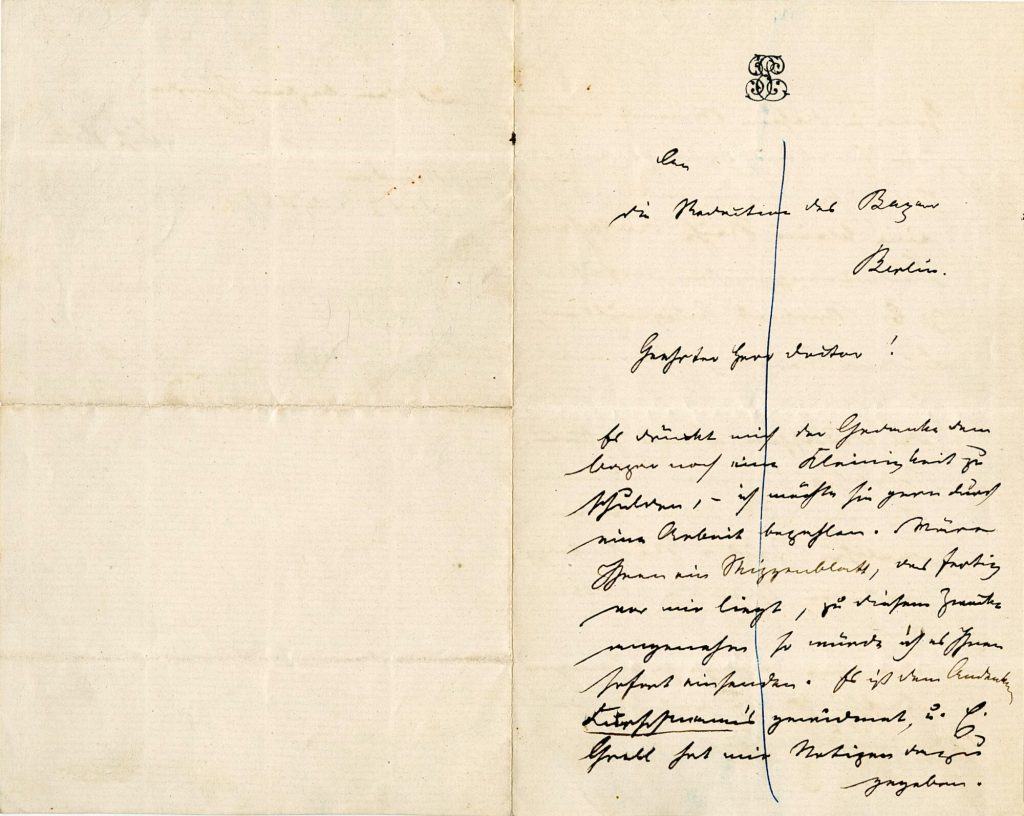 An
die Redaction des Bazar
Berlin.
Geehrter Herr Doctor!
Es drückt mich der Gedanke dem
Bazar noch eine Kleinigkeit zu
schulden, – ich möchte sie gern durch
eine Arbeit bezahlen. Wäre
Ihnen ein Skizzenblatt, das fertig
vor mir liegt, zu diesem Zwecke
angenehm so würde ich es Ihnen
sofort einsenden. Es ist dem Andenken
gewidmet, u. E.
hat mir Notizen dazu
gegeben.